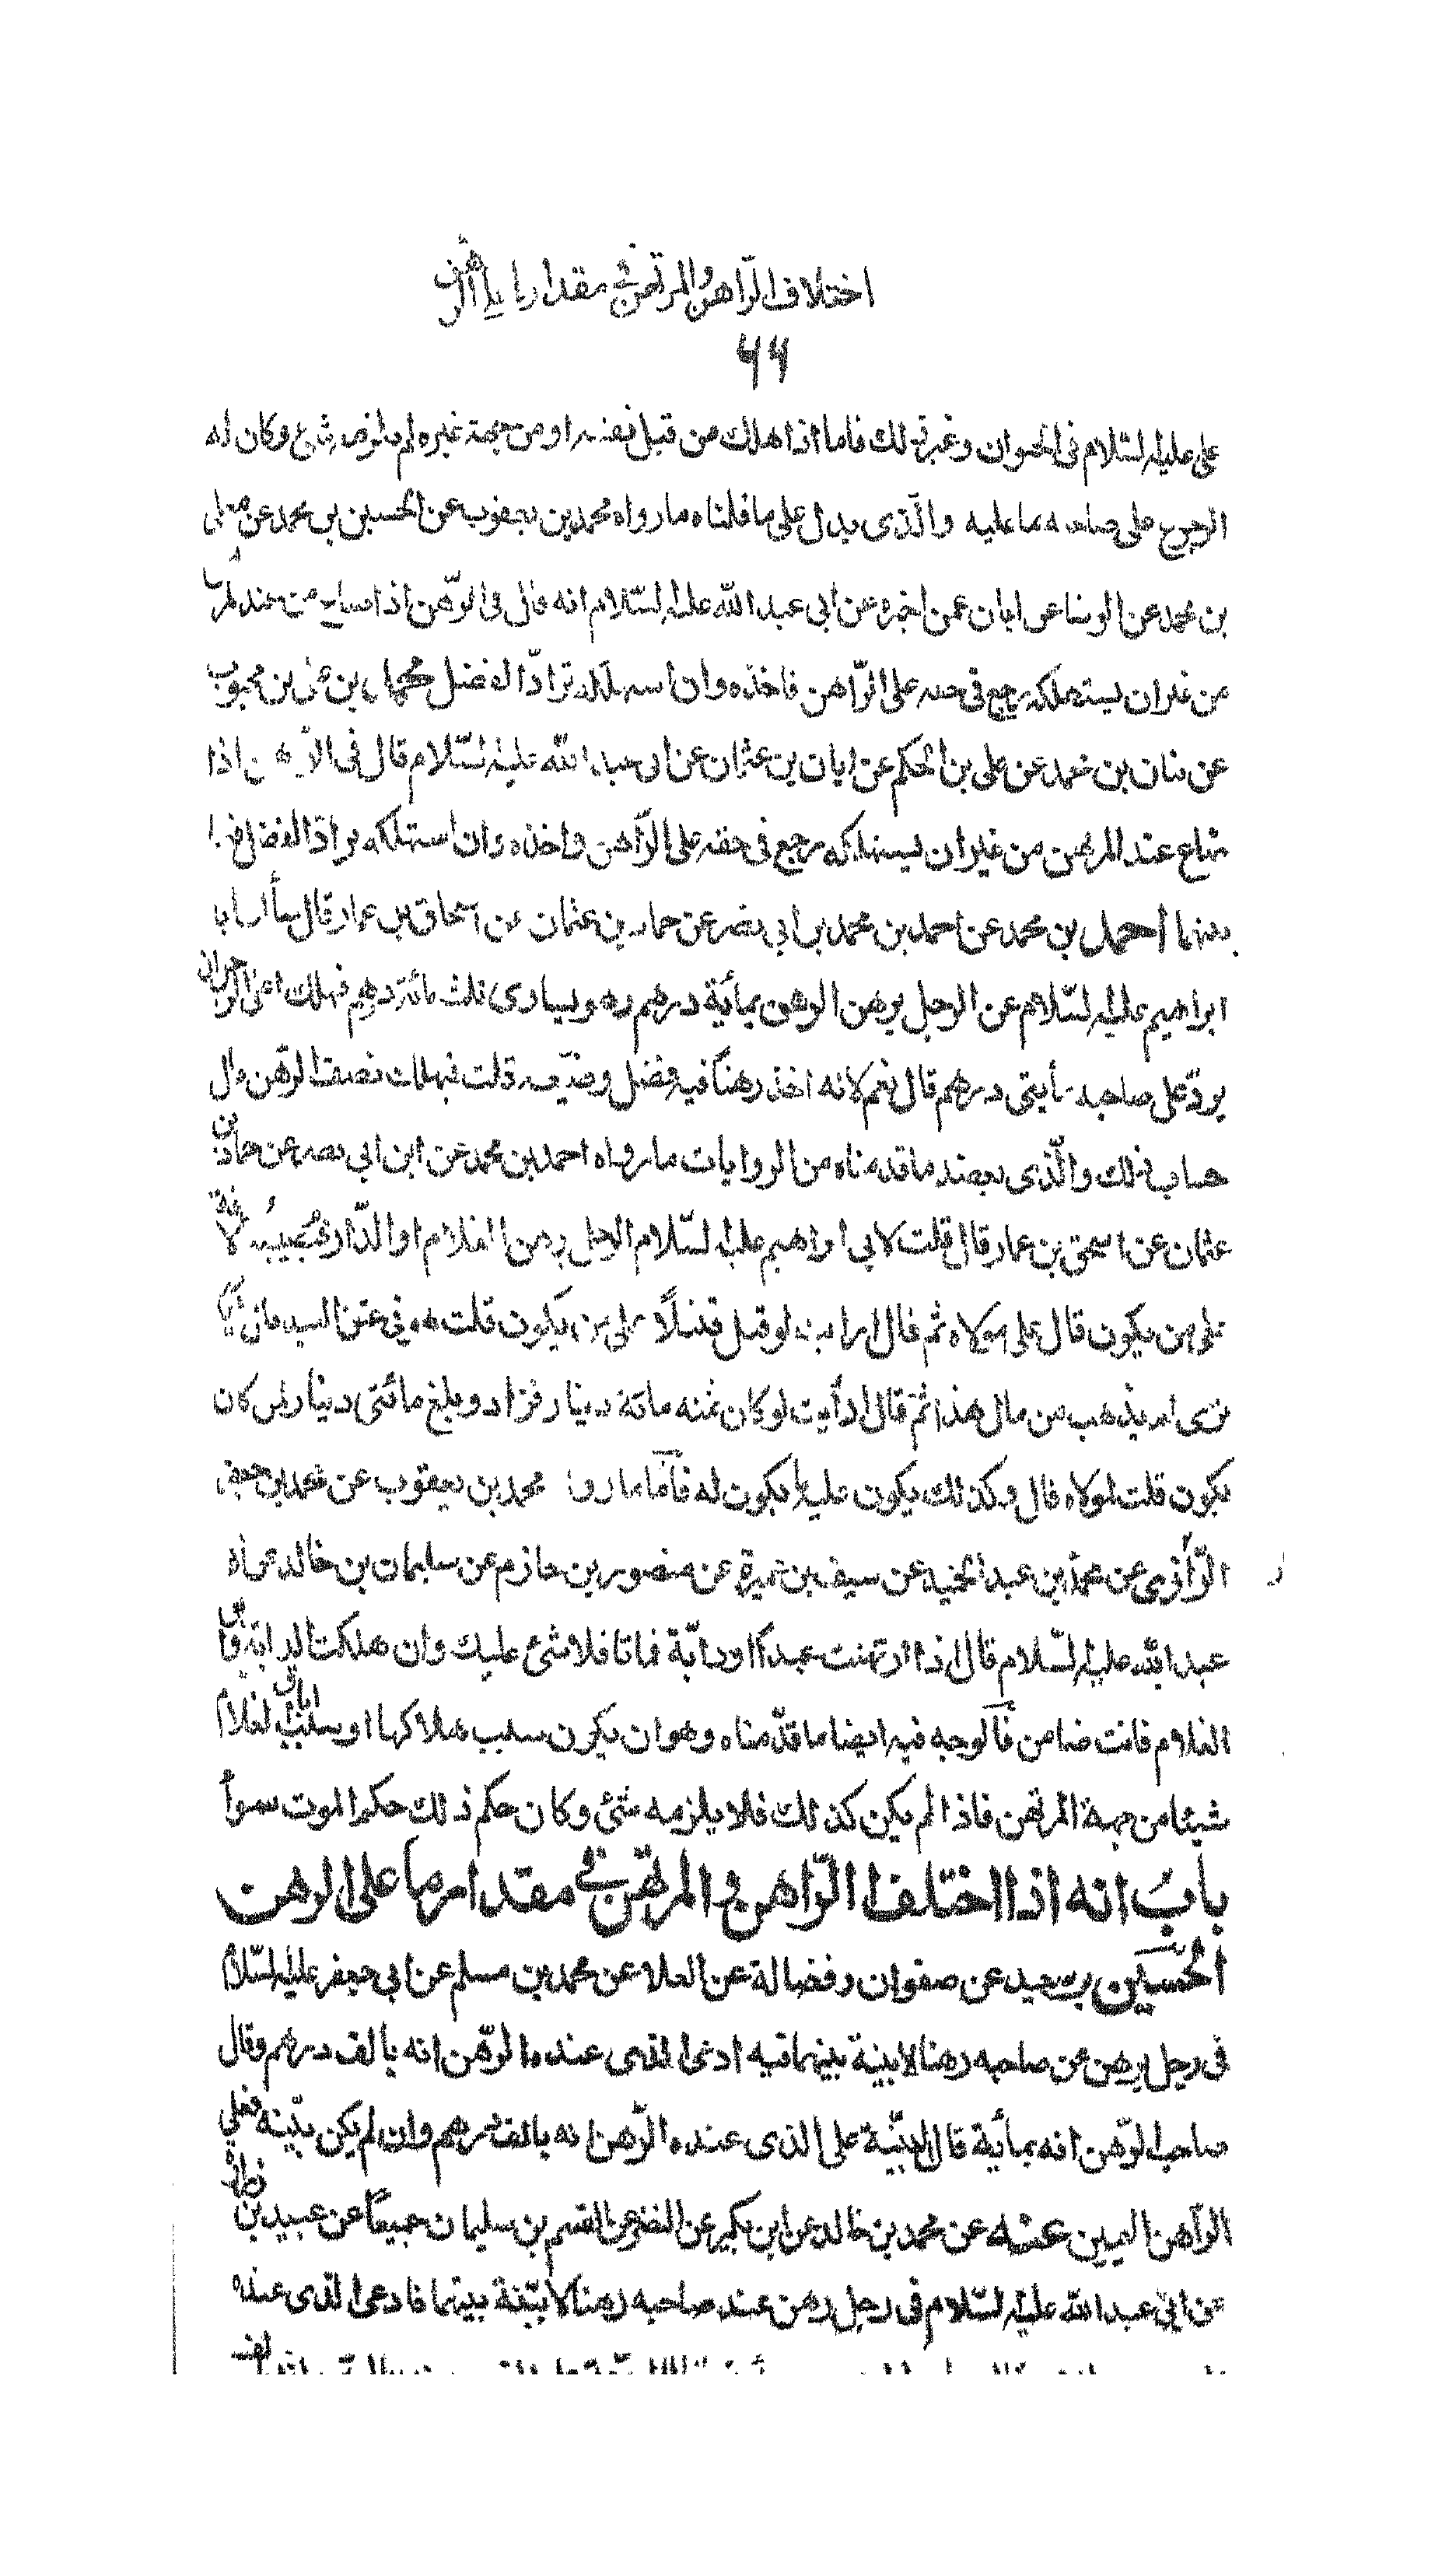 اختلاف الراهن والمرتهن فى مقدار ما
٦٦
على عليه السلام فى الحيوان وغير ذلك فاما اذا هلك من قبل نفسه او من جهة غيره لم يلزمه شئ وكان له
الرجوع على صاحبه بما عليه والذى يدل على ما قلناه ما رواه محمد بن يعقوب عن الحسين بن محمد عن معلى
بن محمد عن الوشا عن ابان عمن اخبره عن ابى عبد الله عليه السلام انه قال فى الرهن اذا ضاع من عند المرتهن
من غير ان يستهلكه رجع فى حقه على الراهن فاخذه وان استهلكه ترادّا الفضل محمد بن على بن محبوب
عن بنان بن محمد عن على بن الحكم عن ابان بن عثمان عن ابى عبد الله عليه السلام قال فى الرهن اذا
ضاع عند المرتهن من غير ان يستهلكه رجع فى حقه على الراهن فاخذه وان استهلكه ترادّا الفضل فيما
بينهما أحمد بن محمد عن احمد بن محمد بن ابى نصر عن حماد بن عثمان عن اسحاق بن عمار قال سألت ابا
ابراهيم عليه السلام عن الرجل يرهن الرهن بمأية درهم وهو يساوى ثلث مائة درهم فيهلك اعلى الرجل ان
يردّ على صاحبه مأيتى درهم قال نعم لانه اخذ رهنًا فيه فضل وضيّعه قلت فهلك نصف الرهن قال
حساب ذلك والّذى يعضد ما قدمناه من الروايات ما رواه احمد بن محمد عن ابن ابى نصر عن حماد بن
عثمان عن اسحق بن عمار قال قلت لابى ابراهيم عليه السلام الرجل يرهن الغلام او الدّار فتُصيبُه الافة
على من يكون قال على مولاه ثم قال ارايت لو قتل قتيلًا على من يكون قلت هو فى عنق العبد قال
ترى لم يذهب من مال هذا ثم قال ارأيت لو كان ثمنه مائة دينار فزاد وبلغ مائتى دينار لمن كان
يكون قلت لمولاه قال وكذلك يكون عليه ما يكون له فأمّا ما رواه محمد بن يعقوب عن محمد بن جعفر
الرّزاز عن محمد بن عبد الحميد عن سيف بن عميرة عن منصور بن حازم عن سليمان بن خالد عن ابى
عبد الله عليه السلام قال اذا ارتهنت عبدًا او دابّة فماتا فلا شئ عليك وان هلكت الدابّة او ابق
الغلام فانت ضامن فالوجه فيه ايضا ما قدّمناه وهو ان يكون سبب هلاكها او سبب اباق الغلام
شيئا من جهة المرتهن فاذا لم يكن كذلك فلا يلزمه شئ وكان حكم ذلك حكم الموت سوأ
بابُ انه اذا اختلف الرّاهن والمرتهن فى مقدار ما على الرهن
الحُسَين بن سعيد عن صفوان وفضالة عن العلا عن محمد بن مسلم عن ابى جعفر عليه السلام
فى رجل يرهن عن صاحبه رهنا لا بينة بينهما فيه ادعى الذى عنده الرّهن انه بالف درهم وقال
صاحب الرّهن انه بمأية قال البيّنة على الذى عنده الرّهن انه بالف درهم وان لم يكن بيّنة فعلى
الرّاهن اليمين عنه عن محمد بن خالد عن ابن بكير عن النضر عن القسم بن سليمان جميعًا عن عبيد بن زرارة
عن ابى عبد الله عليه السلام فى رجل رهن عند صاحبه رهنا لا بيّنة بينهما فادعى الذى عنده